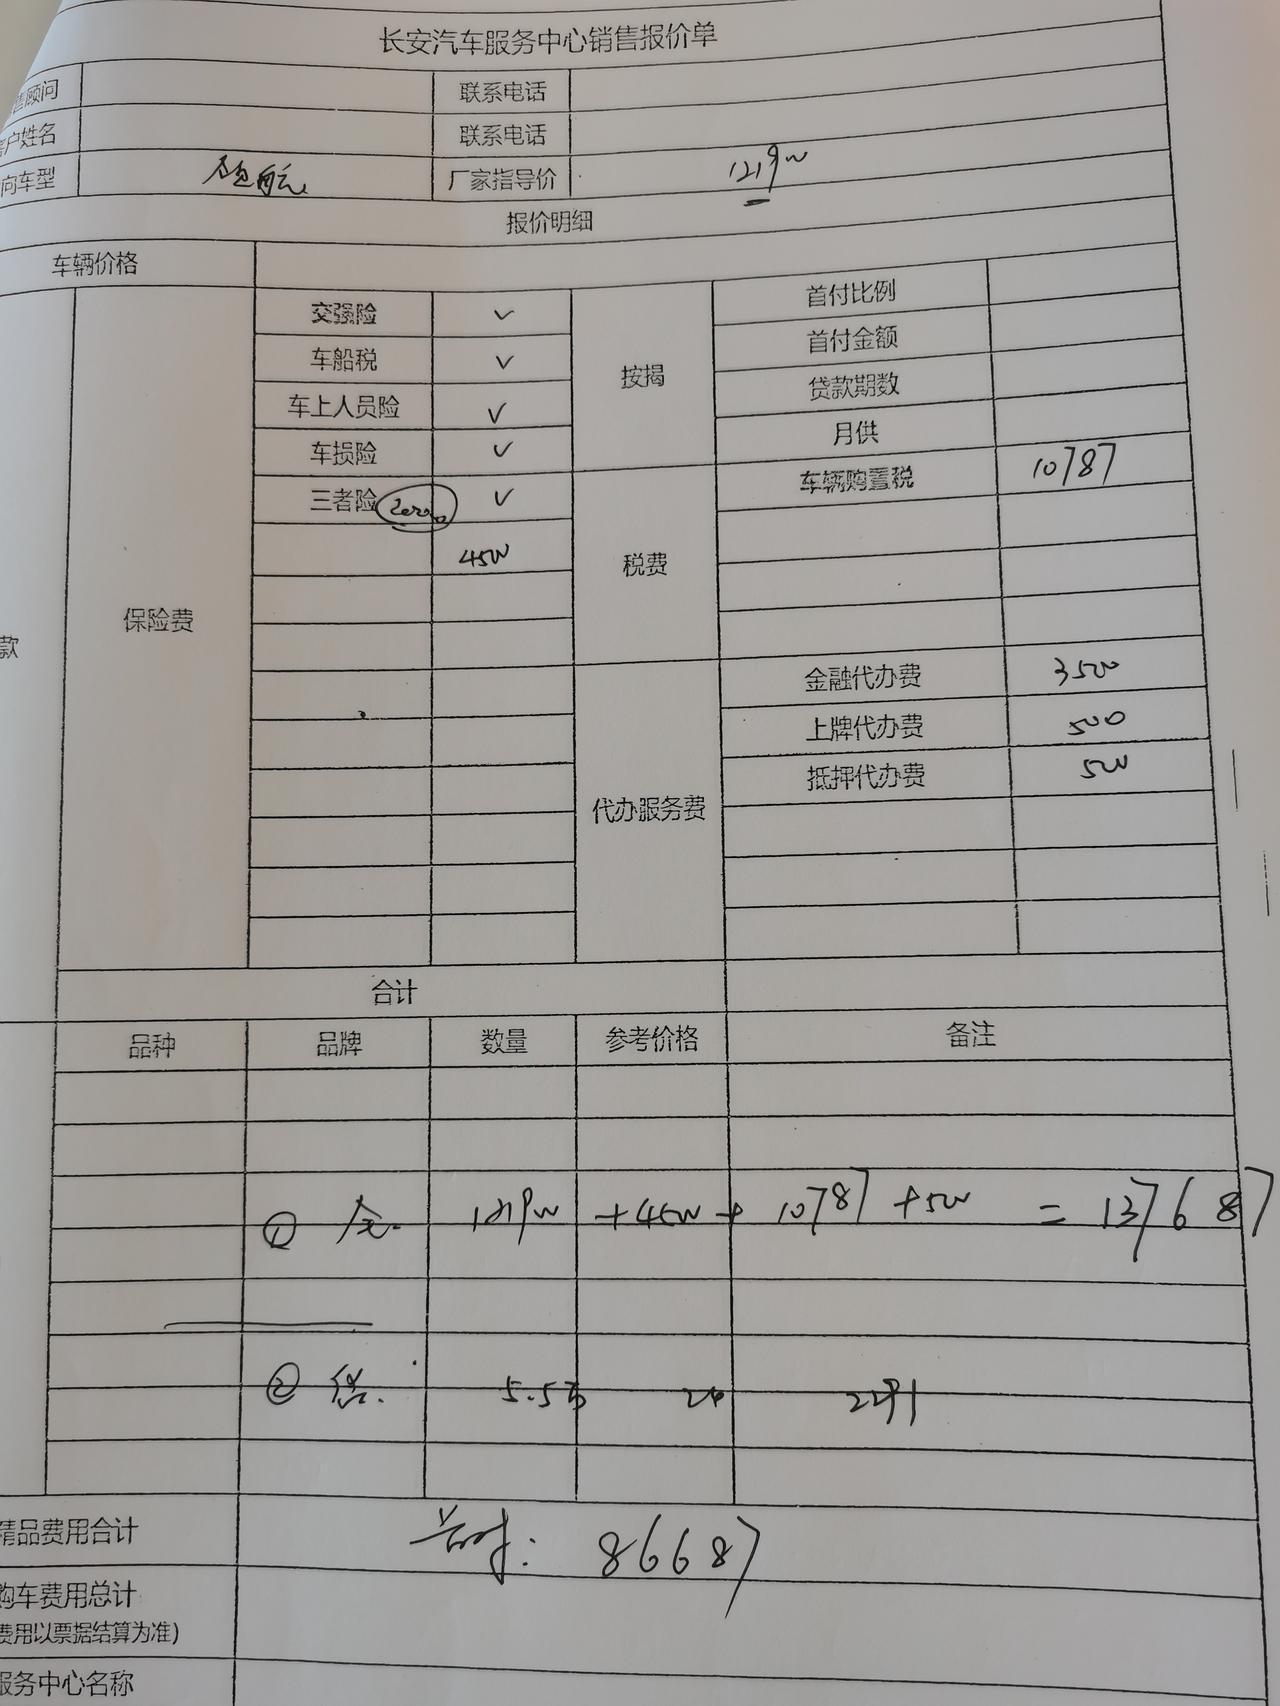 长安汽车服务中心销售报价单
售顾问 联系电话
客户姓名 联系电话
向车型 领航 厂家指导价 121900
报价明细
车辆价格
交强险 ✓ 首付比例
车船税 ✓ 首付金额
车上人员险 ✓ 按揭 贷款期数
车损险 ✓ 月供
三者险 ✓ 车辆购置税 10787
4500
税费
保险费
款
金融代办费 3500
上牌代办费 500
抵押代办费 500
代办服务费
合计
品种 品牌 数量 参考价格 备注
① 全. 121900 + 4500 + 10787 + 500 = 137687
② 贷. 5.5万 24 2291
精品费用合计 首付: 86687
购车费用总计
费用以票据结算为准)
服务中心名称